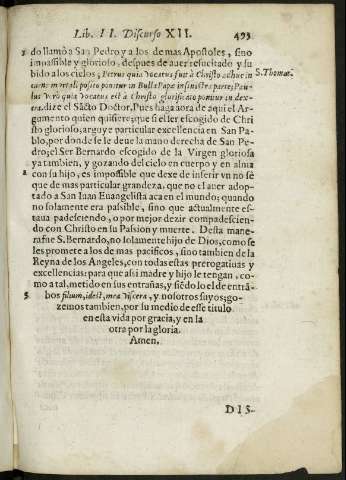 Lib. II. Discurso XII. 493
do llamò a San Pedro y a los de mas Apostoles, sino
impassible y glorioso, despues de auer resucitado y su
bido a los cielos; Petrus quia vocatus fuit à Christo adhuc in
S. Thomas.
carne mortali posito ponitur in Bulla Papæ in sinistra parte; Pau
lus verò quia vocatus est à Christo glorificato ponitur in dex-
tera. dize el Sãcto Doctor. Pues haga aora de aqui el Ar-
gumento quien quisiere; que si el ser escogido de Chri
sto glorioso, arguye particular excellencia en San Pa-
blo, por donde se le deue la mano derecha de San Pe-
dro; el Ser Bernardo escogido de la Virgen gloriosa
ya tambien, y gozando del cielo en cuerpo y en alma
con su hijo, es impossible que dexe de inferir vn no sè
que de mas particular grandeza, que no el auer adop-
tado a San Iuan Euangelista aca en el mundo; quando
no solamente era passible, sino que actualmente es-
taua padesciendo, o por mejor dezir compadescien-
do con Christo en su Passion y muerte. Desta mane-
ra fue S. Bernardo, no solamente hijo de Dios, como se
les promete a los de mas pacificos, sino tambien de la
Reyna de los Angeles, con todas estas prerogatiuas y
excellencias: para que assi madre y hijo le tengan, co-
mo a tal, metido en sus entrañas, y siẽdolo el de entrã-
5 bos filium, idest, mea viscera, y nosotros suyos; go-
zemos tambien, por su medio de esse titulo
en esta vida por gracia, y en la
otra por la gloria.
Amen.
DIS-